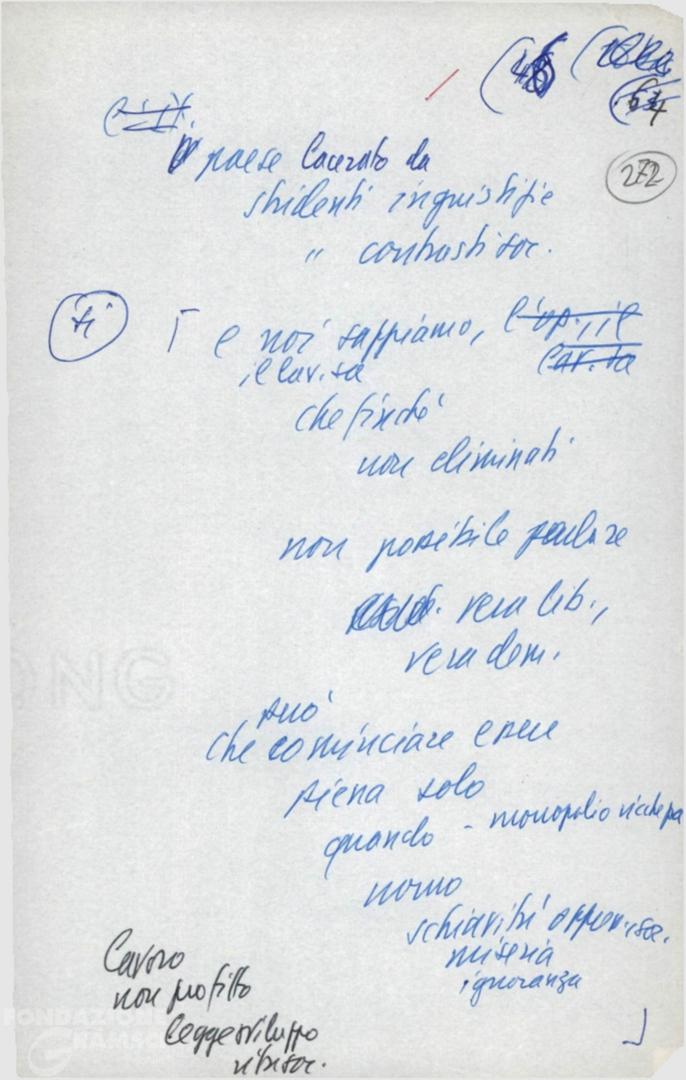 (48
64
272
paese lacerato da
stridenti ingiustizie
" contrasti soc.
ti
e noi sappiamo,
il lav. sa
che finché
non eliminati
non possibile parlare
vera lib.,
vera dem.
può
che cominciare essere
piena solo
quando - monopolio ricchezza
uomo
schiavitù
miseria
ignoranza
lavoro
non profitto
legge sviluppo
ONG
FONDAZIONE
GRAMSCI